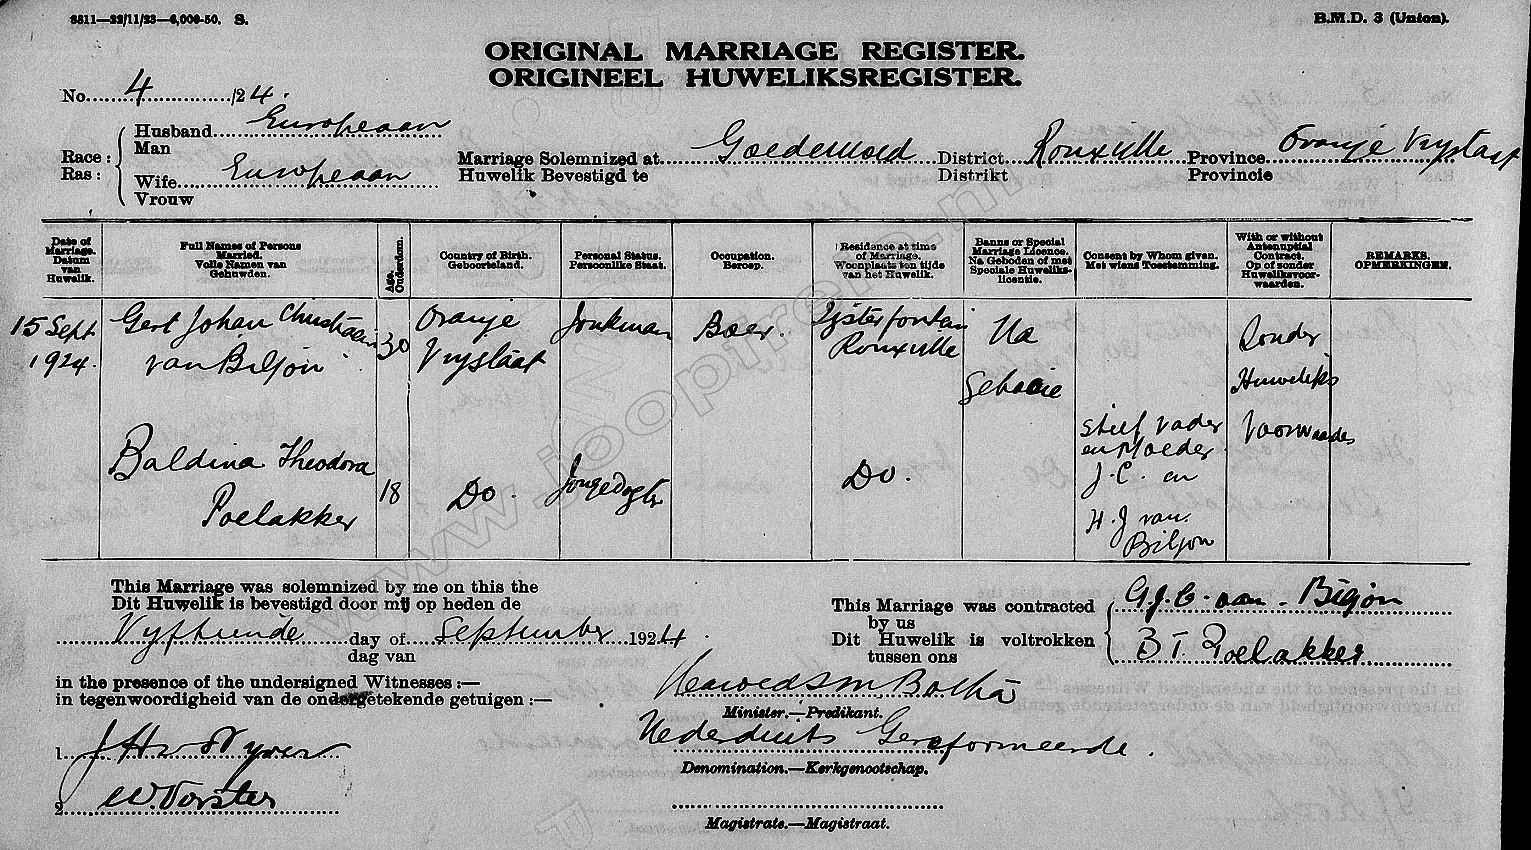 8811—22/11/23—6,000-50. S.
B.M.D. 3 (Union).
ORIGINAL MARRIAGE REGISTER.
ORIGINEEL HUWELIKSREGISTER.
No. 4 /24.
Race:
Ras:
Husband Europeaan
Man
Wife Europeaan
Vrouw
Marriage Solemnized at Goedemoed District Rouxville Province Oranje Vrystaat
Huwelik Bevestigd te Distrikt Provincie
Date of Marriage. Datum van Huwelik.
Full Names of Persons Married. Volle Namen van Gehuwden.
Age. Ouderdom.
Country of Birth. Geboorteland.
Personal Status. Persoonlike Staat.
Occupation. Beroep.
Residence at time of Marriage. Woonplaats ten tijde van het Huwelik.
Banns or Special Marriage Licence. Na Geboden of met Speciale Huweliks-licentie.
Consent by Whom given. Met wiens Toestemming.
With or without Antenuptial Contract. Op of zonder Huweliksvoor-waarden.
REMARKS. OPMERKINGEN.
15 Sept 1924.
Gert Johan Christiaan van Biljon
30
Oranje Vrystaat
Jonkman
Boer.
Rouxville
Na Geboaie
Sonder Huweliks Voorwaades
Baldina Theodora Poelakker
18
Do.
Jongedogter
Do.
Stief vader en Moeder J.C. en H.J van Biljon
This Marriage was solemnized by me on this the
Dit Huwelik is bevestigd door mij op heden de
Vyftiende day of September 1924.
dag van
in the presence of the undersigned Witnesses:—
in tegenwoordigheid van de ondergetekende getuigen:—
1.
2. W. Vorster
This Marriage was contracted
by us
Dit Huwelik is voltrokken
tussen ons
G.J.C. van Biljon
B T Poelakker
Botha
Minister.—Predikant.
Nederduits Gereformeerde.
Denomination.—Kerkgenootschap.
Magistrate.—Magistraat.
www.jooptrein.nl